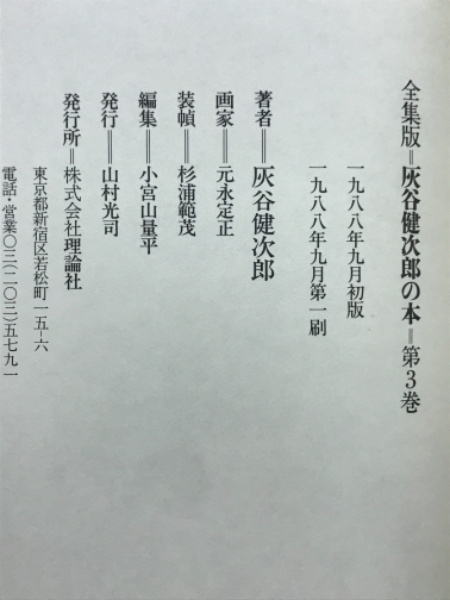 全集版＝灰谷健次郎の本＝第3巻
一九八八年九月初版
一九八八年九月第一刷
著者＝灰谷健次郎
画家＝元永定正
装幀＝杉浦範茂
編集＝小宮山量平
発行＝山村光司
発行所＝株式会社理論社
東京都新宿区若松町一五-六
電話・営業〇三(二〇三)五七九一